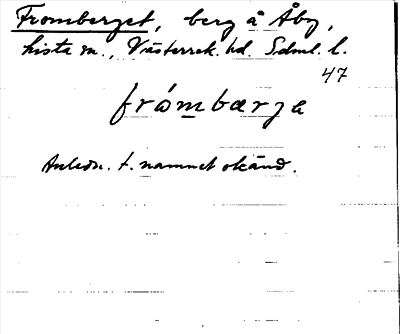 Fromberget, berg å Åby,
hista sn., Västerrek. hd. Sdml. l.
47
frómbærja
Anledn. t. namnet okänd.